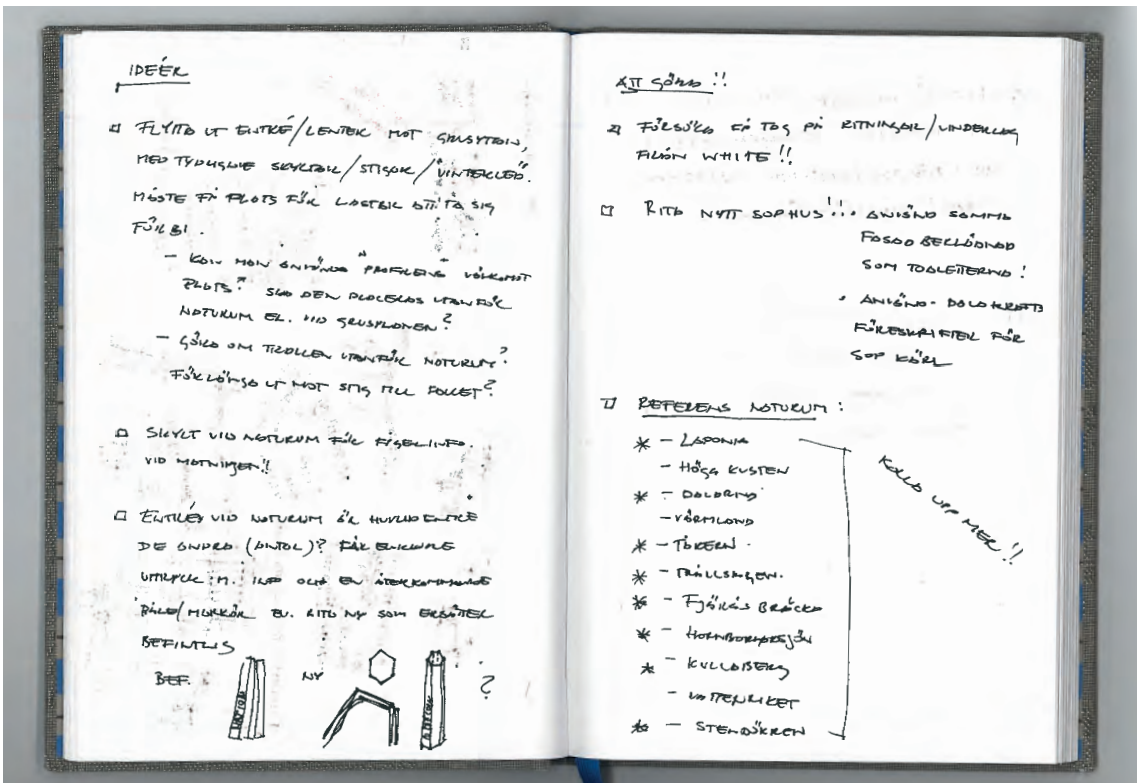 IDÉER
FLYTTA UT ENTRÉ/ENTRÉR MOT GRUSYTAN,
MED TYDLIGARE SKYLTAR/STIGAR/VINTERLED.
MÅSTE FÅ PLATS FÖR LASTBIL ATT TA SIG
FÖRBI.
- KAN MAN ANVÄNDA PROFILENS "VÄLKOMST
PLATS"? SKA DEN PLACERAS UTANFÖR
NATURUM EL. VID GRUSPLANEN?
- GÖRA OM TRALLEN UTANFÖR NATURUM?
FÖRLÄNGA UT MOT STIG TILL FALLET?
SKYLT VID NATURUM FÖR FÅGELINFO.
VID MATNINGEN!!
ENTRÉN VID NATURUM ÄR HUVUDENTRÉ
DE ANDRA (ANTAL)? FÅR ENKLARE
UTTRYCK M. INFO OCH EN ÅTERKOMMANDE
PÅLE/MARKÖR EV. RITA NY SOM ERSÄTTER
BEFINTLIG
BEF. NY ?
ATT GÖRA!!
FÖRSÖKA FÅ TAG PÅ RITNINGAR/UNDERLAG
FRÅN WHITE!!
RITA NYTT SOPHUS!!. ANVÄND SAMMA
FASAD BEKLÄDNAD
SOM TOALETTERNA!
ANVÄND
FÖRESKRIFTER FÖR
SOP KÄRL
REFERENS NATURUM:
* - LAPONIA
- HÖGA KUSTEN
* - DALARNA
- VÄRMLAND
* - TÅKERN
* - TROLLSKOGEN.
* - FJÄRÅS BRÄCKA
* - HORNBORGASJÖN
* - KULLABERG
- VATTENRIKET
* - STENDÖRREN
KOLLA UPP MER!!